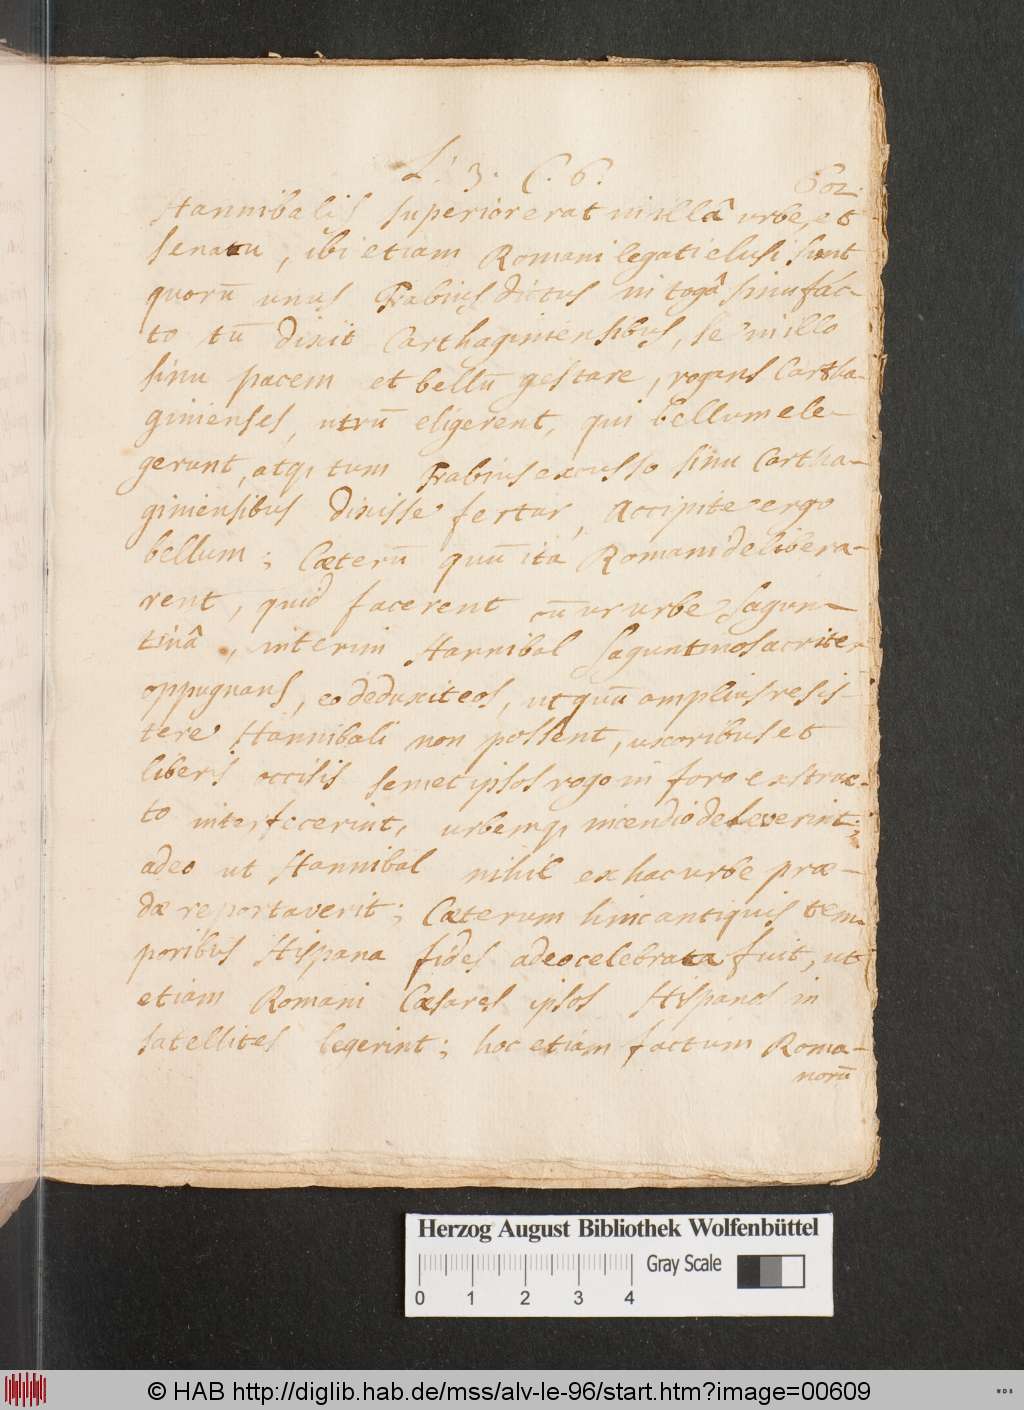 L. 3. C. 6.
602.
Hannibalis superior erat in illâ urbe, et
senatu, ibi etiam Romani legati elusi sunt
quorū unus Fabius dictus in togâ sinu fac-
to tū dixit Carthaginiensibus, se in illo
sinu pacem et bellū gestare, rogans Cartha-
ginienses, utrū eligerent, qui bellum ele-
gerunt, atq, tum Fabius excusso sinu Cartha-
giniensibus dixisse fertur, Accipite ergo
bellum; Cæterū quū ita Romani delibera-
rent, quid facerent cū urbe Sagun-
tinâ, interim Hannibal Saguntinos acriter
oppugnans, eo deduxit eos, ut quū amplius resis-
tere Hannibali non possent, uxoribus et
liberis occisis semet ipsos rogo in foro exstruc-
to interfecerint, urbemq, incendio deleverint;
adeo ut Hannibal nihil ex hac urbe præ-
dæ reportaverit; Cæterum hinc antiquis tem-
poribus Hispana fides adeo celebrata fuit, ut
etiam Romani Cæsares ipsos Hispanos in
satellites legerint; hoc etiam factum Roma-
norū
Herzog August Bibliothek Wolfenbüttel
Gray Scale
0 1 2 3 4
© HAB http://diglib.hab.de/mss/alv-le-96/start.htm?image=00609